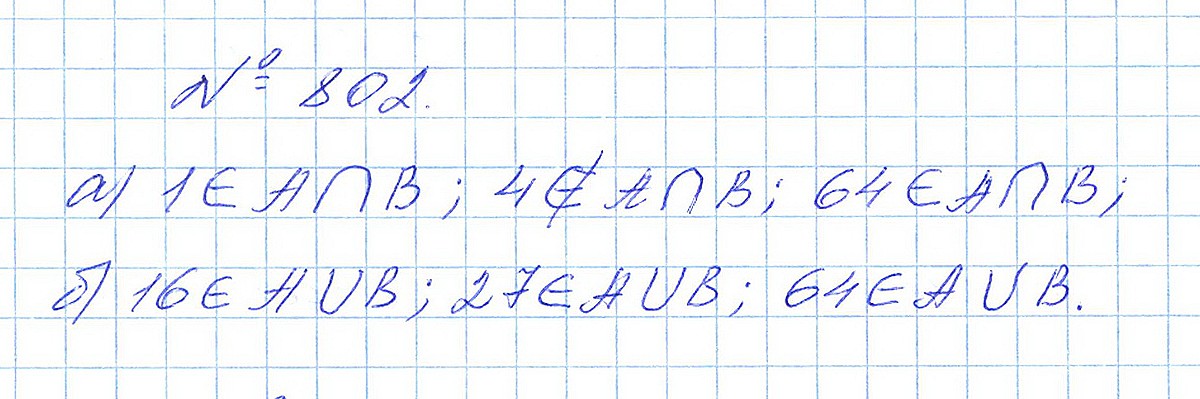 № 802.
а) 1 ∈ A ∩ B; 4 ∉ A ∩ B; 64 ∈ A ∩ B;
б) 16 ∈ A ∪ B; 27 ∈ A ∪ B; 64 ∈ A ∪ B.